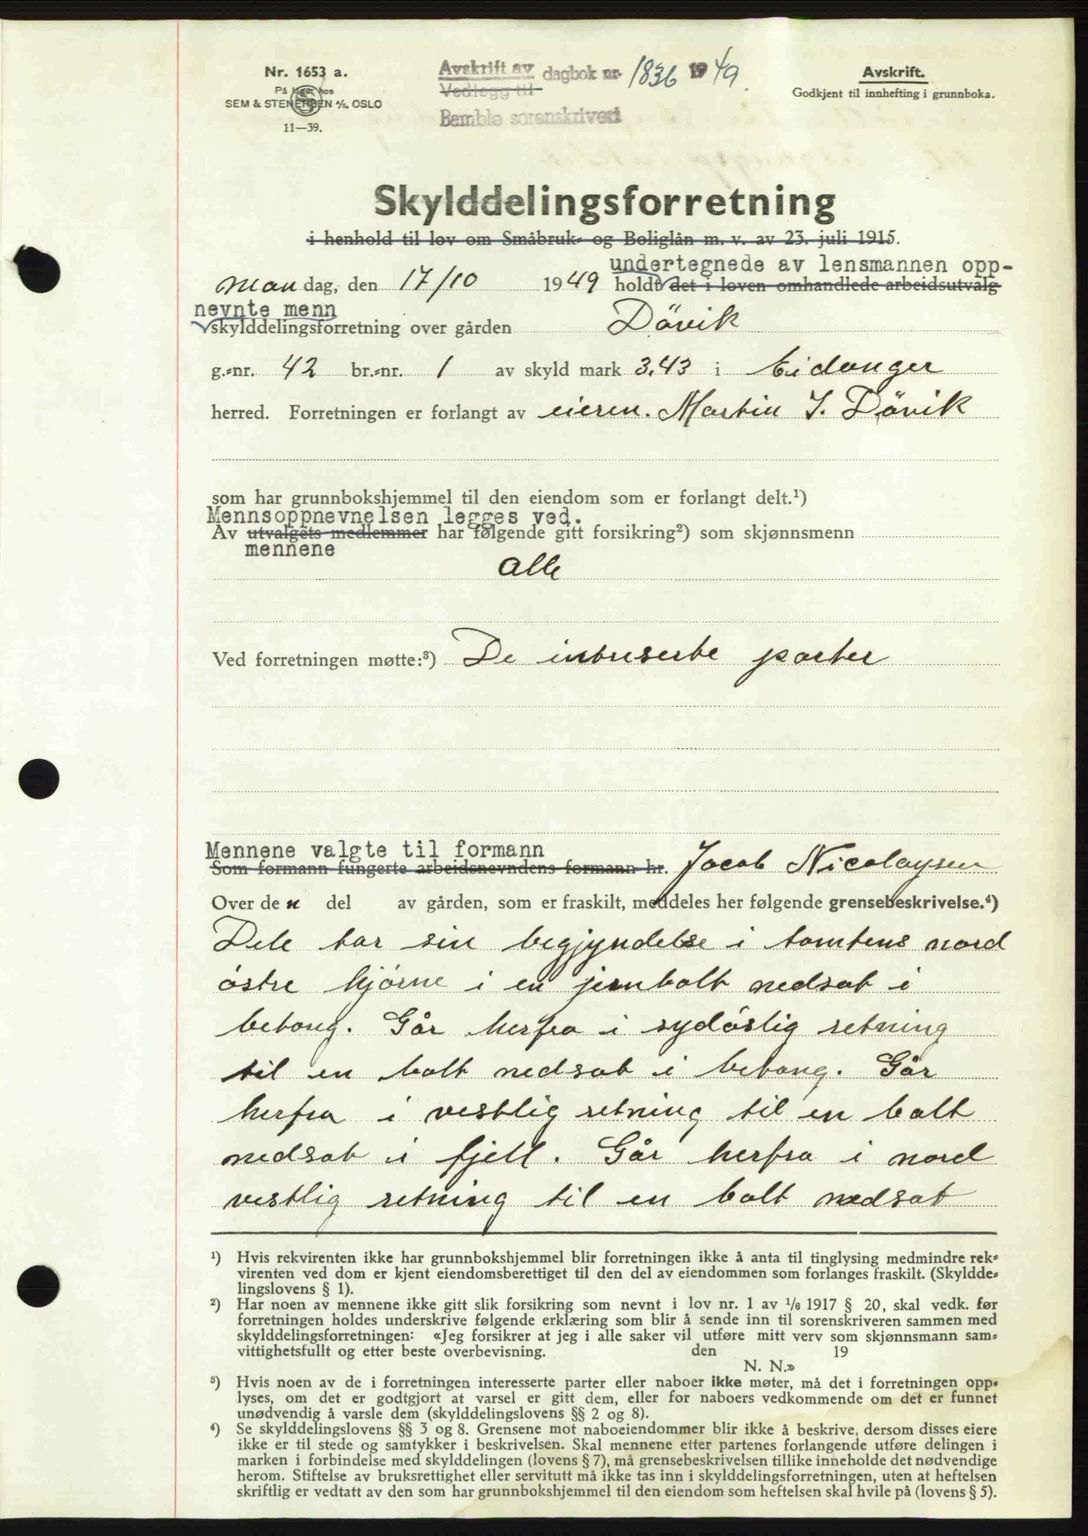 Nr. 1653 a.
På lager hos
SEM & STENERSEN A/S, OSLO
11—39.
Avskrift av dagbok nr. 1836 1949.
Vedlegg til
Bamble sorenskriveri
Avskrift.
Godkjent til innhefting i grunnboka.
Skylddelingsforretning
i henhold til lov om Småbruk- og Boliglån m. v. av 23. juli 1915.
undertegnede av lensmannen opp-
man dag, den 17/10 1949 holdt det i loven omhandlede arbeidsutvalg
nevnte menn
skylddelingsforretning over gården Dövik
g.-nr. 42 br.-nr. 1 av skyld mark 3.43 i Eidanger
herred. Forretningen er forlangt av eieren. Martin J. Dövik
som har grunnbokshjemmel til den eiendom som er forlangt delt.¹)
Mennsoppnevnelsen legges ved.
Av utvalgets medlemmer har følgende gitt forsikring²) som skjønnsmenn
mennene
alle
Ved forretningen møtte:³) De intreserte parter
Mennene valgte til formann
Som formann fungerte arbeidsnevndens formann hr. Jacob Nicolaysen
Over den del av gården, som er fraskilt, meddeles her følgende grensebeskrivelse.⁴)
Dele tar sin begjyndelse i tomtens nord
östre hjörne i en jernbolt nedsat i
betong. Går herfra i sydöslig retning
til en bolt nedsat i betong. Går
herfra i vestlig retning til en bolt
nedsat i fjell. Går herfra i nord
vestlig retning til en bolt nedsat
¹) Hvis rekvirenten ikke har grunnbokshjemmel blir forretningen ikke å anta til tinglysing medmindre rek-
virenten ved dom er kjent eiendomsberettiget til den del av eiendommen som forlanges fraskilt. (Skyldde-
lingslovens § 1).
²) Har noen av mennene ikke gitt slik forsikring som nevnt i lov nr. 1 av 1/6 1917 § 20, skal vedk. før
forretningen holdes underskrive følgende erklæring som blir å sende inn til sorenskriveren sammen med
skylddelingsforretningen: «Jeg forsikrer at jeg i alle saker vil utføre mitt verv som skjønnsmann sam-
vittighetsfullt og etter beste overbevisning. den 19
N. N.»
³) Hvis noen av de i forretningen interesserte parter eller naboer ikke møter, må det i forretningen opp-
lyses, om det er godtgjort at varsel er gitt dem, eller for naboers vedkommende om det er funnet
unødvendig å varsle dem (skylddelingslovens §§ 2 og 8).
⁴) Se skylddelingslovens §§ 3 og 8. Grensene mot naboeiendommer blir ikke å beskrive, dersom disses eiere
ikke er til stede og samtykker i beskrivelsen. Skal mennene etter partenes forlangende utføre delingen i
marken i forbindelse med skylddelingen (lovens § 7), må grensebeskrivelsen tillike inneholde det nødvendige
herom. Stiftelse av bruksrettighet eller servitutt må ikke tas inn i skylddelingsforretningen, uten at heftelsen
skriftlig er vedtatt av den som har grunnbokshjemmel til den eiendom som heftelsen skal hvile på (lovens § 5).